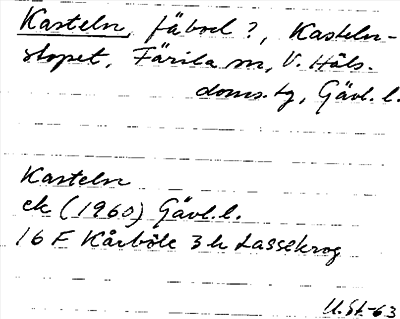 Kasteln, fäbod ?, Kasteln-
stopet, Färila sn, V. Häls.
doms. tg, Gävl. l.
Kasteln
ek (1960) Gävl. l.
16 F Kårböle 3 h Lassekrog
U.St-63